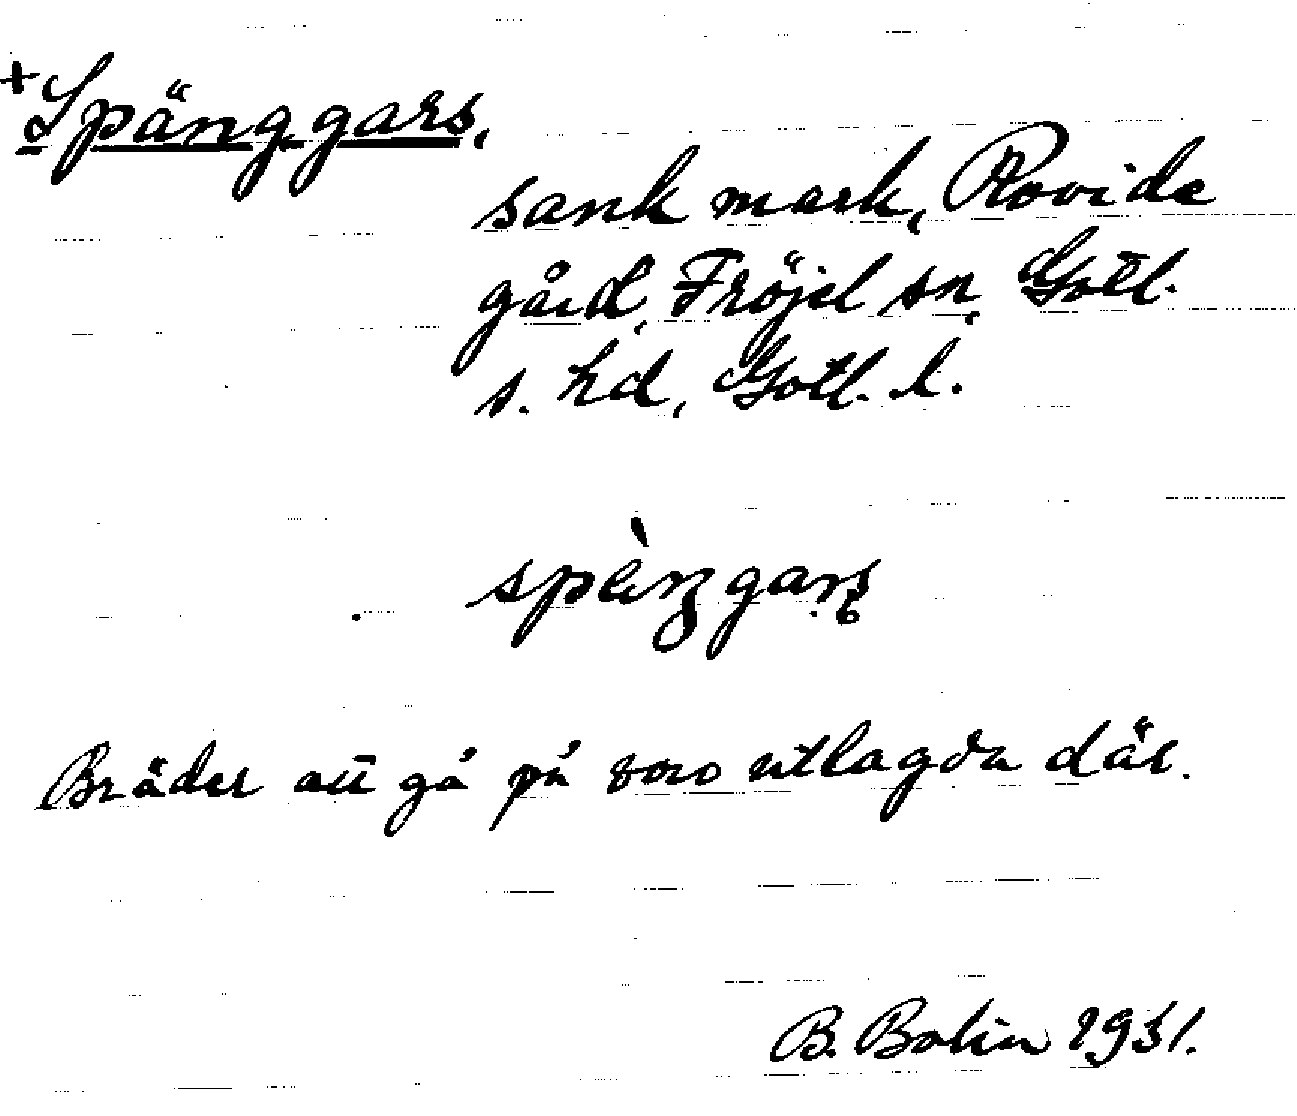 +Spänggars,
sank mark, Rovide
gård, Fröjel sn, Gotl.
s. hd, Gotl. l.
Bräder att gå på voro utlagda där.
B. Bolin 1931.